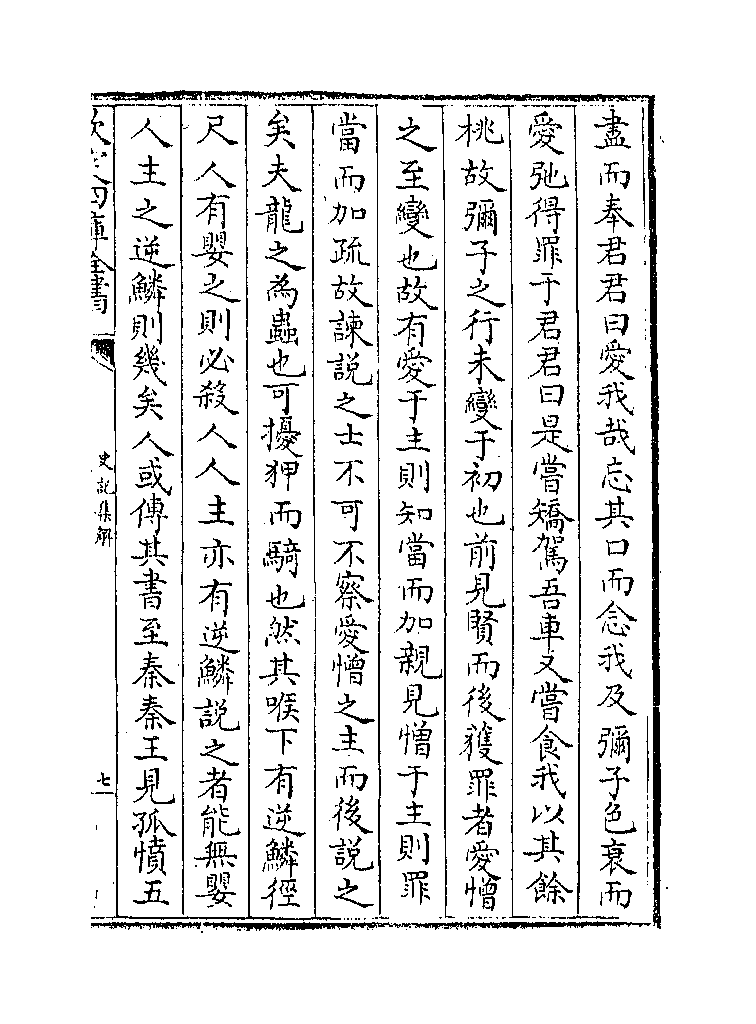 盡而奉君君曰愛我哉忘其口而念我及彌子色衰而
愛弛得罪于君君曰是嘗矯駕吾車又嘗食我以其餘
桃故彌子之行未變于初也前見賢而後獲罪者愛憎
之至變也故有愛于主則知當而加親見憎于主則罪
當而加疏故諫説之士不可不察愛憎之主而後説之
矣夫龍之為蟲也可擾狎而騎也然其喉下有逆鱗徑
尺人有嬰之則必殺人人主亦有逆鱗説之者能無嬰
人主之逆鱗則幾矣人或傳其書至秦秦王見孤憤五
欽定四庫全書
史記集解
七